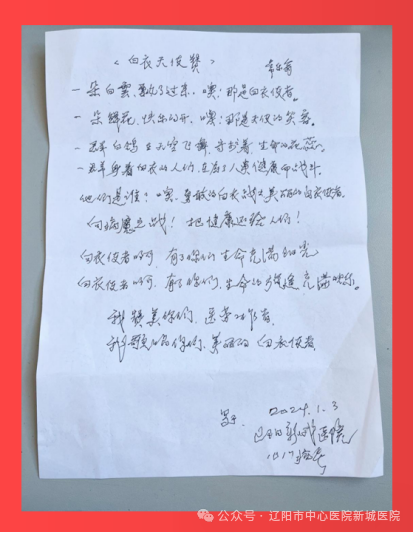 《白衣天使赞》
一朵白云,飘了过来,噢!那是白衣使者。
一朵鲜花,快乐的开,噢!那是天使的笑容。
一群白鸽 在天空飞舞,寻找着 生命的
一群身着白衣的人们,在为了人类健康而战斗。
他们是谁?噢,勇敢的白衣战士美丽的白衣使者。
向病魔宣战!把健康还给人们!
白衣使者啊,有了你们 生命充满阳光
白衣使者啊,有了你们,生命的 充满快乐。
我赞美你们,医务工作者,
我歌唱你们,美丽的 白衣使者
2024.1.3
新城医院
公众号 · 辽阳市中心医院新城医院